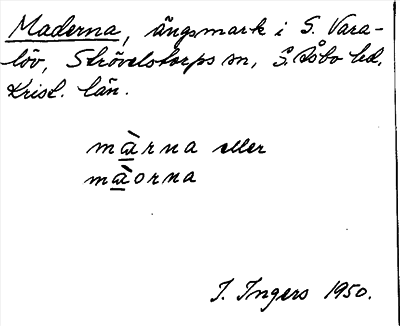 Maderna, ängsmark i S. Vara-
löv, Strövelstorps sn, S. Åsbo hd,
Krist. län.
mà̲rna eller
mà̲orna
I. Ingers 1950.